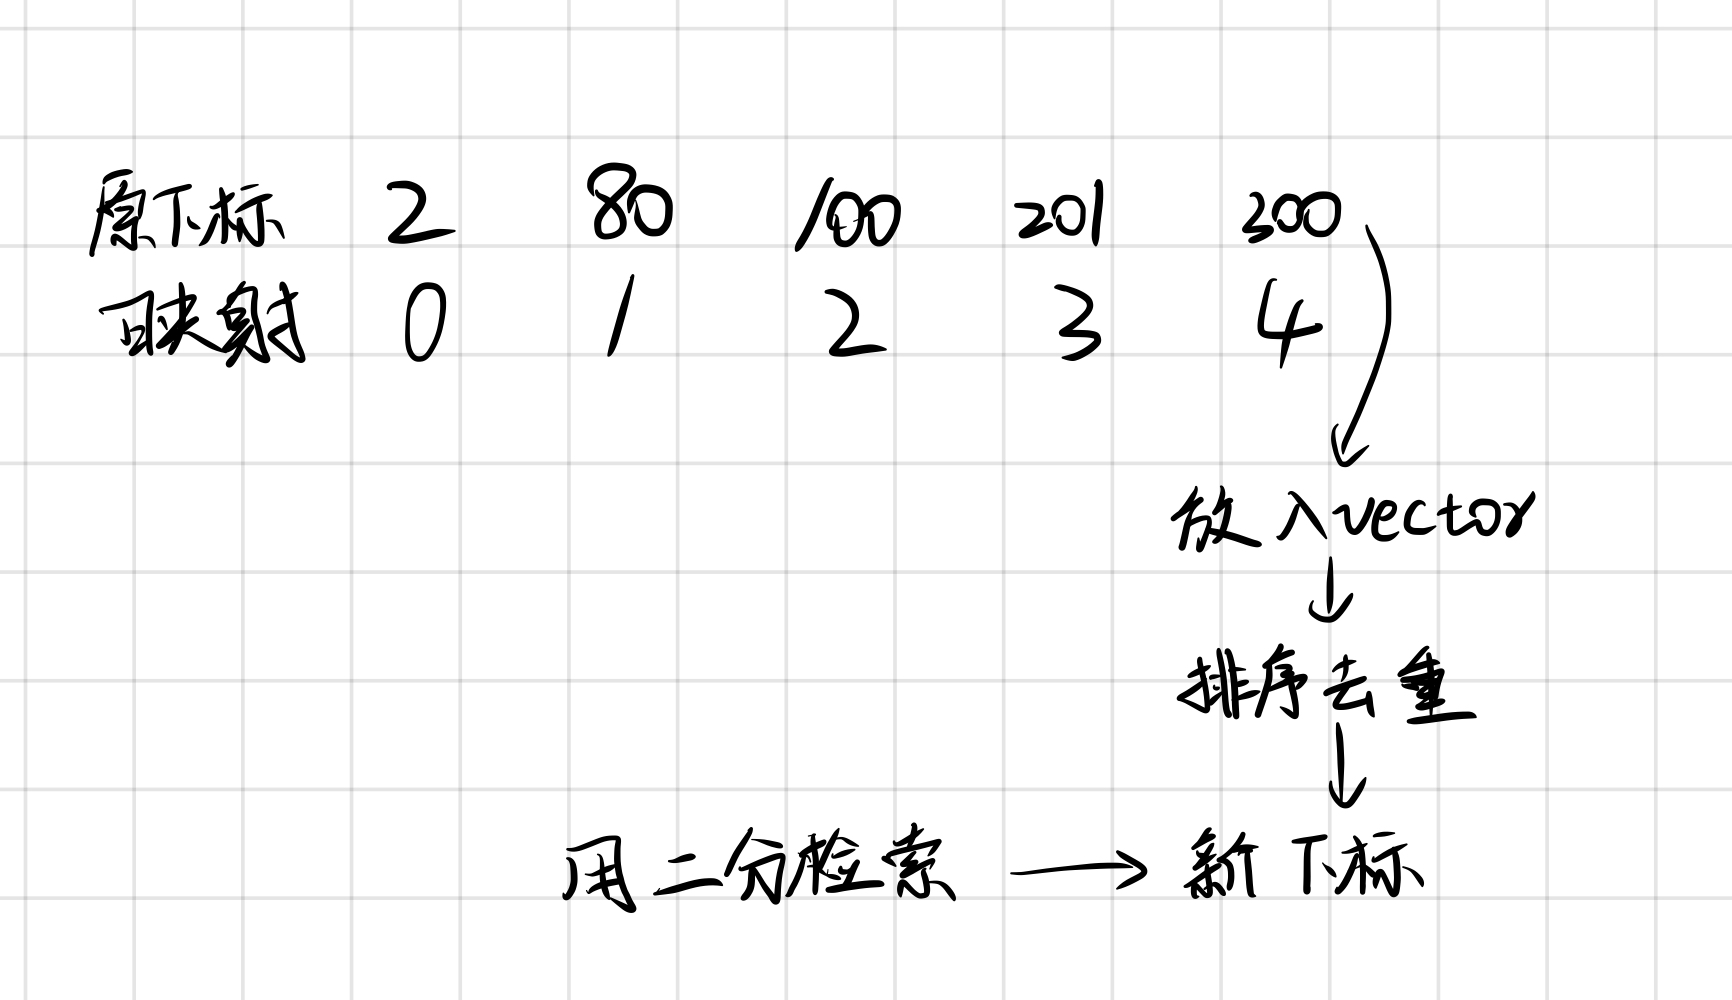 原下标 2 80 100 201 300
映射 0 1 2 3 4
放入vector
排序去重
用二分检索 → 新下标